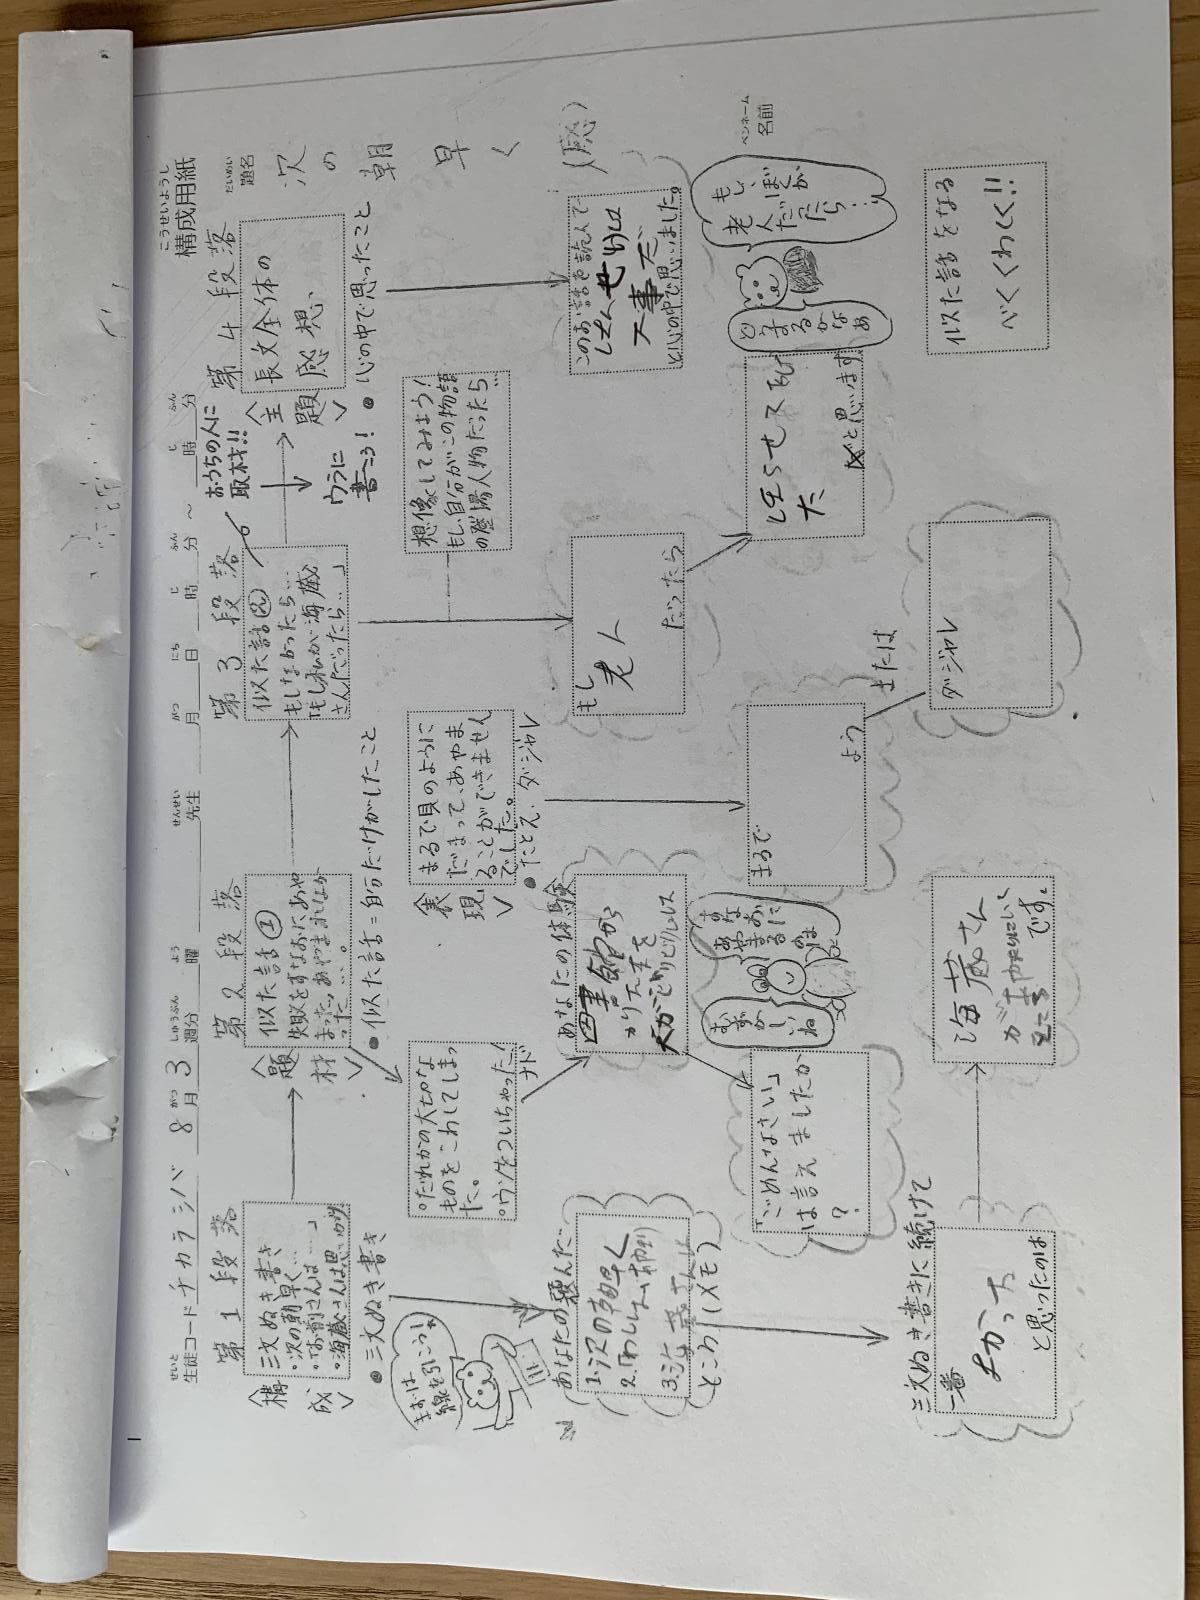 構成用紙
こうせいようし
題名
だいめい
次の朝早く(感)
名前
ペンネーム
生徒コード チカラシバ 8月3週分 曜 先生 月 日 時 分 ~ 時 分
第1段落
〈構成〉
三文ぬき書き
・次の朝早く…
・「お前さんは…」
・海蔵さんは思いがけ
● 三文ぬき書き
まずは
線を引こう!
あなたの選んだ…
1.次の朝早く
2.「わしの
3.海蔵さんは
ところ(メモ)
三文ぬき書きに続けて
一番
よかった
と思ったのは
海蔵さん
です。
第2段落
〈題材〉
似た話①
失敗をすなおにあや
まった・あやまれなか
った…。
● 似た話=自分だけがしたこと
○だれかの大切な
ものをこわしてしまっ
た。
○ウソをついちゃった!
ナド
あなたの体験
図書館から
かりた本を
犬がビリビリにした
すなおに
あやまる
のは
むずかし
いね
「ごめんなさい」
は言えましたか
?
〈表現〉
まるで貝のように
だまって、あやま
ることができません
でした。
● たとえ・ダジャレ
まるで
よう
または
ダジャレ
第3段落
似た話②
もしなかったら…
「もし私が海蔵
さんだったら…」
おうちの人に
取材!!
ウラに
書こう!
想像してみよう!
もし、自分がこの物語
の登場人物だったら…
もし
老人
だったら
と思います
もし、ぼくが
老人
だったら…
どう
するかなあ
似た話をなる
べくくわしく!!
第4段落
〈主題〉
長文全体の
感想
● 心の中で思ったこと
このお話を読んで
大事だ
と心の中で思いました。